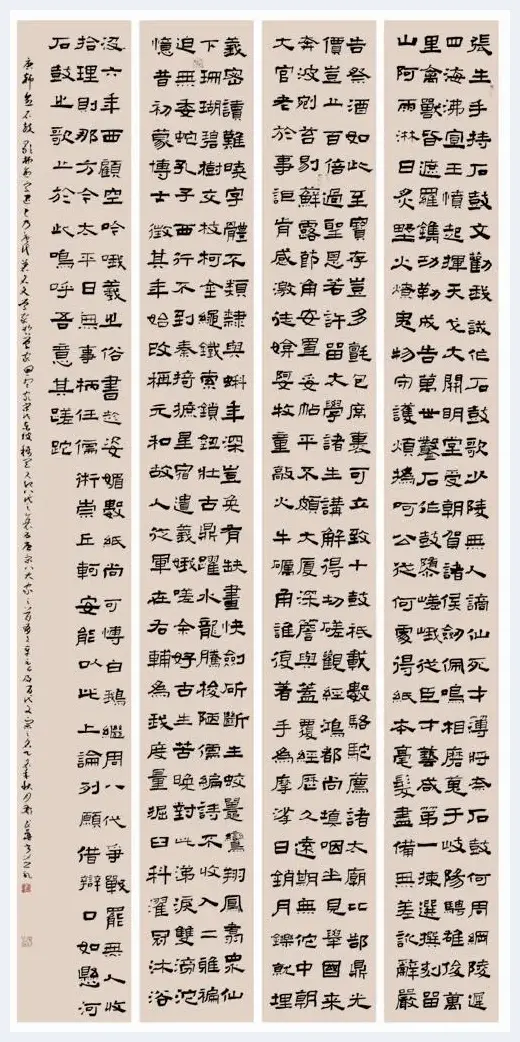 張生手持石鼓文勸我試作石鼓歌少陵無人謫仙死才薄將奈石鼓何周綱陵遲
四海沸宣王憤起揮天戈大開明堂受朝賀諸侯劍佩鳴相磨蒐于岐陽騁雄俊萬
里禽獸皆遮羅鐫功勒成告萬世鑿石作鼓隳嵯峨從臣才藝咸第一揀選撰刻留
山阿雨淋日炙野火燎鬼物守護煩撝呵公從何處得紙本毫髮盡備無差訛辭嚴
告祭酒如此至寶存豈多氈包席裹可立致十鼓祇載數駱駝薦諸太廟比郜鼎光
價豈止百倍過聖恩若許留太學諸生講解得切磋觀經鴻都尚填咽坐見舉國來
奔波剜苔剔蘚露節角安置妥帖平不頗大廈深簷與蓋覆經歷久遠期無佗中朝
大官老於事詎肯感激徒媕婀牧童敲火牛礪角誰復著手為摩挲日銷月鑠就埋
義密讀難曉字體不類隸與蝌年深豈免有缺畫快劍斫斷生蛟鼉鸞翔鳳翥眾仙
下珊瑚碧樹交枝柯金繩鐵索鎖鈕壯古鼎躍水龍騰梭陋儒編詩不收入二雅褊
迫無委蛇孔子西行不到秦掎摭星宿遺羲娥嗟余好古生苦晚對此涕淚雙滂沱
憶昔初蒙博士徵其年始改稱元和故人從軍在右輔為我度量掘臼科濯冠沐浴
沒六年西顧空吟哦羲之俗書趁姿媚數紙尚可博白鵝繼周八代爭戰罷無人收
拾理則那方今太平日無事柄任儒術崇丘軻安能以此上論列願借辯口如懸河
石鼓之歌止於此嗚呼吾意其蹉跎